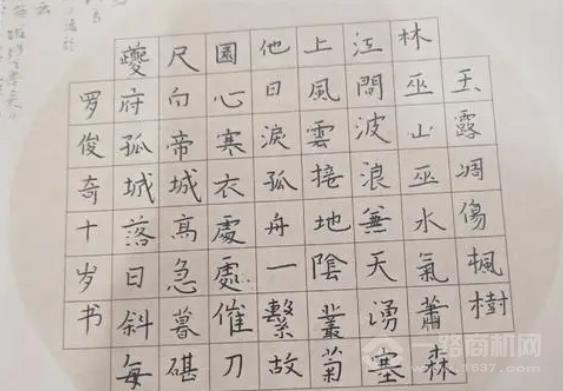 玉露凋傷楓樹
林巫山巫水氣蕭森
江間波浪兼天湧塞
上風雲接地陰叢菊
他日淚孤舟一繫故
園心寒衣處處催刀
尺向帝城高急暮碪
夔府孤城落日斜每
罗俊奇十岁书
一路商机网
www.1637.com